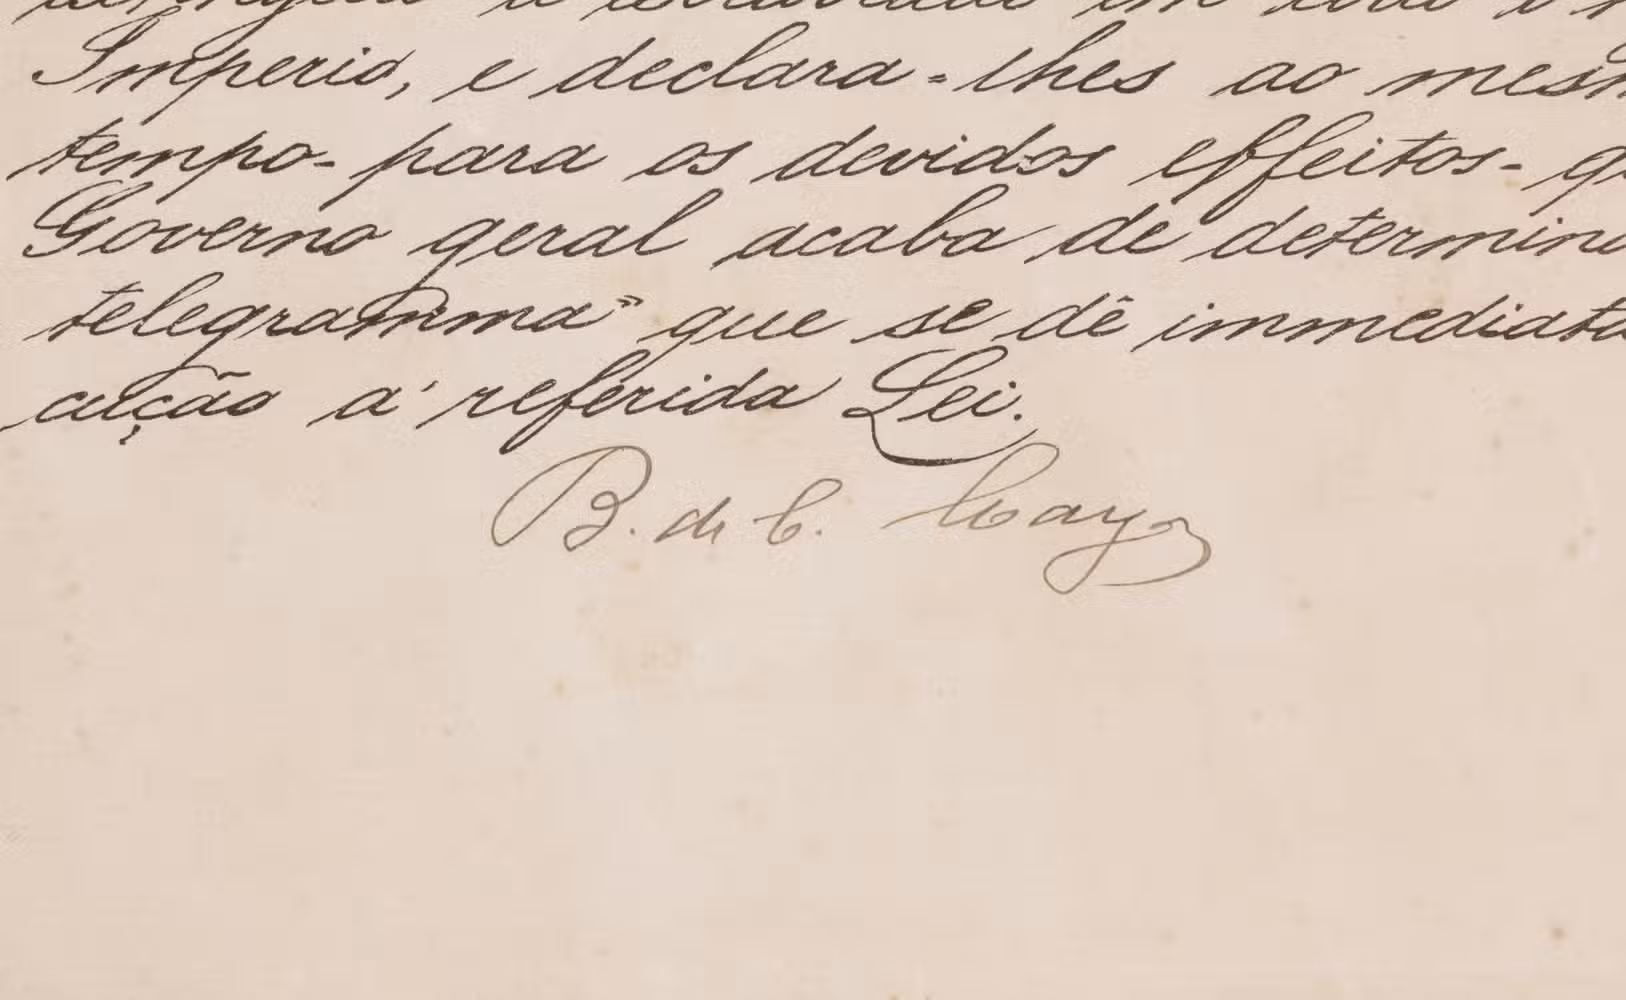 Imperio, e declara-lhes ao mesm
tempo- para os devidos effeitos- q
Governo geral acaba de determin
telegramma" que se dê immediata
cução á referida Lei.
B. de C.